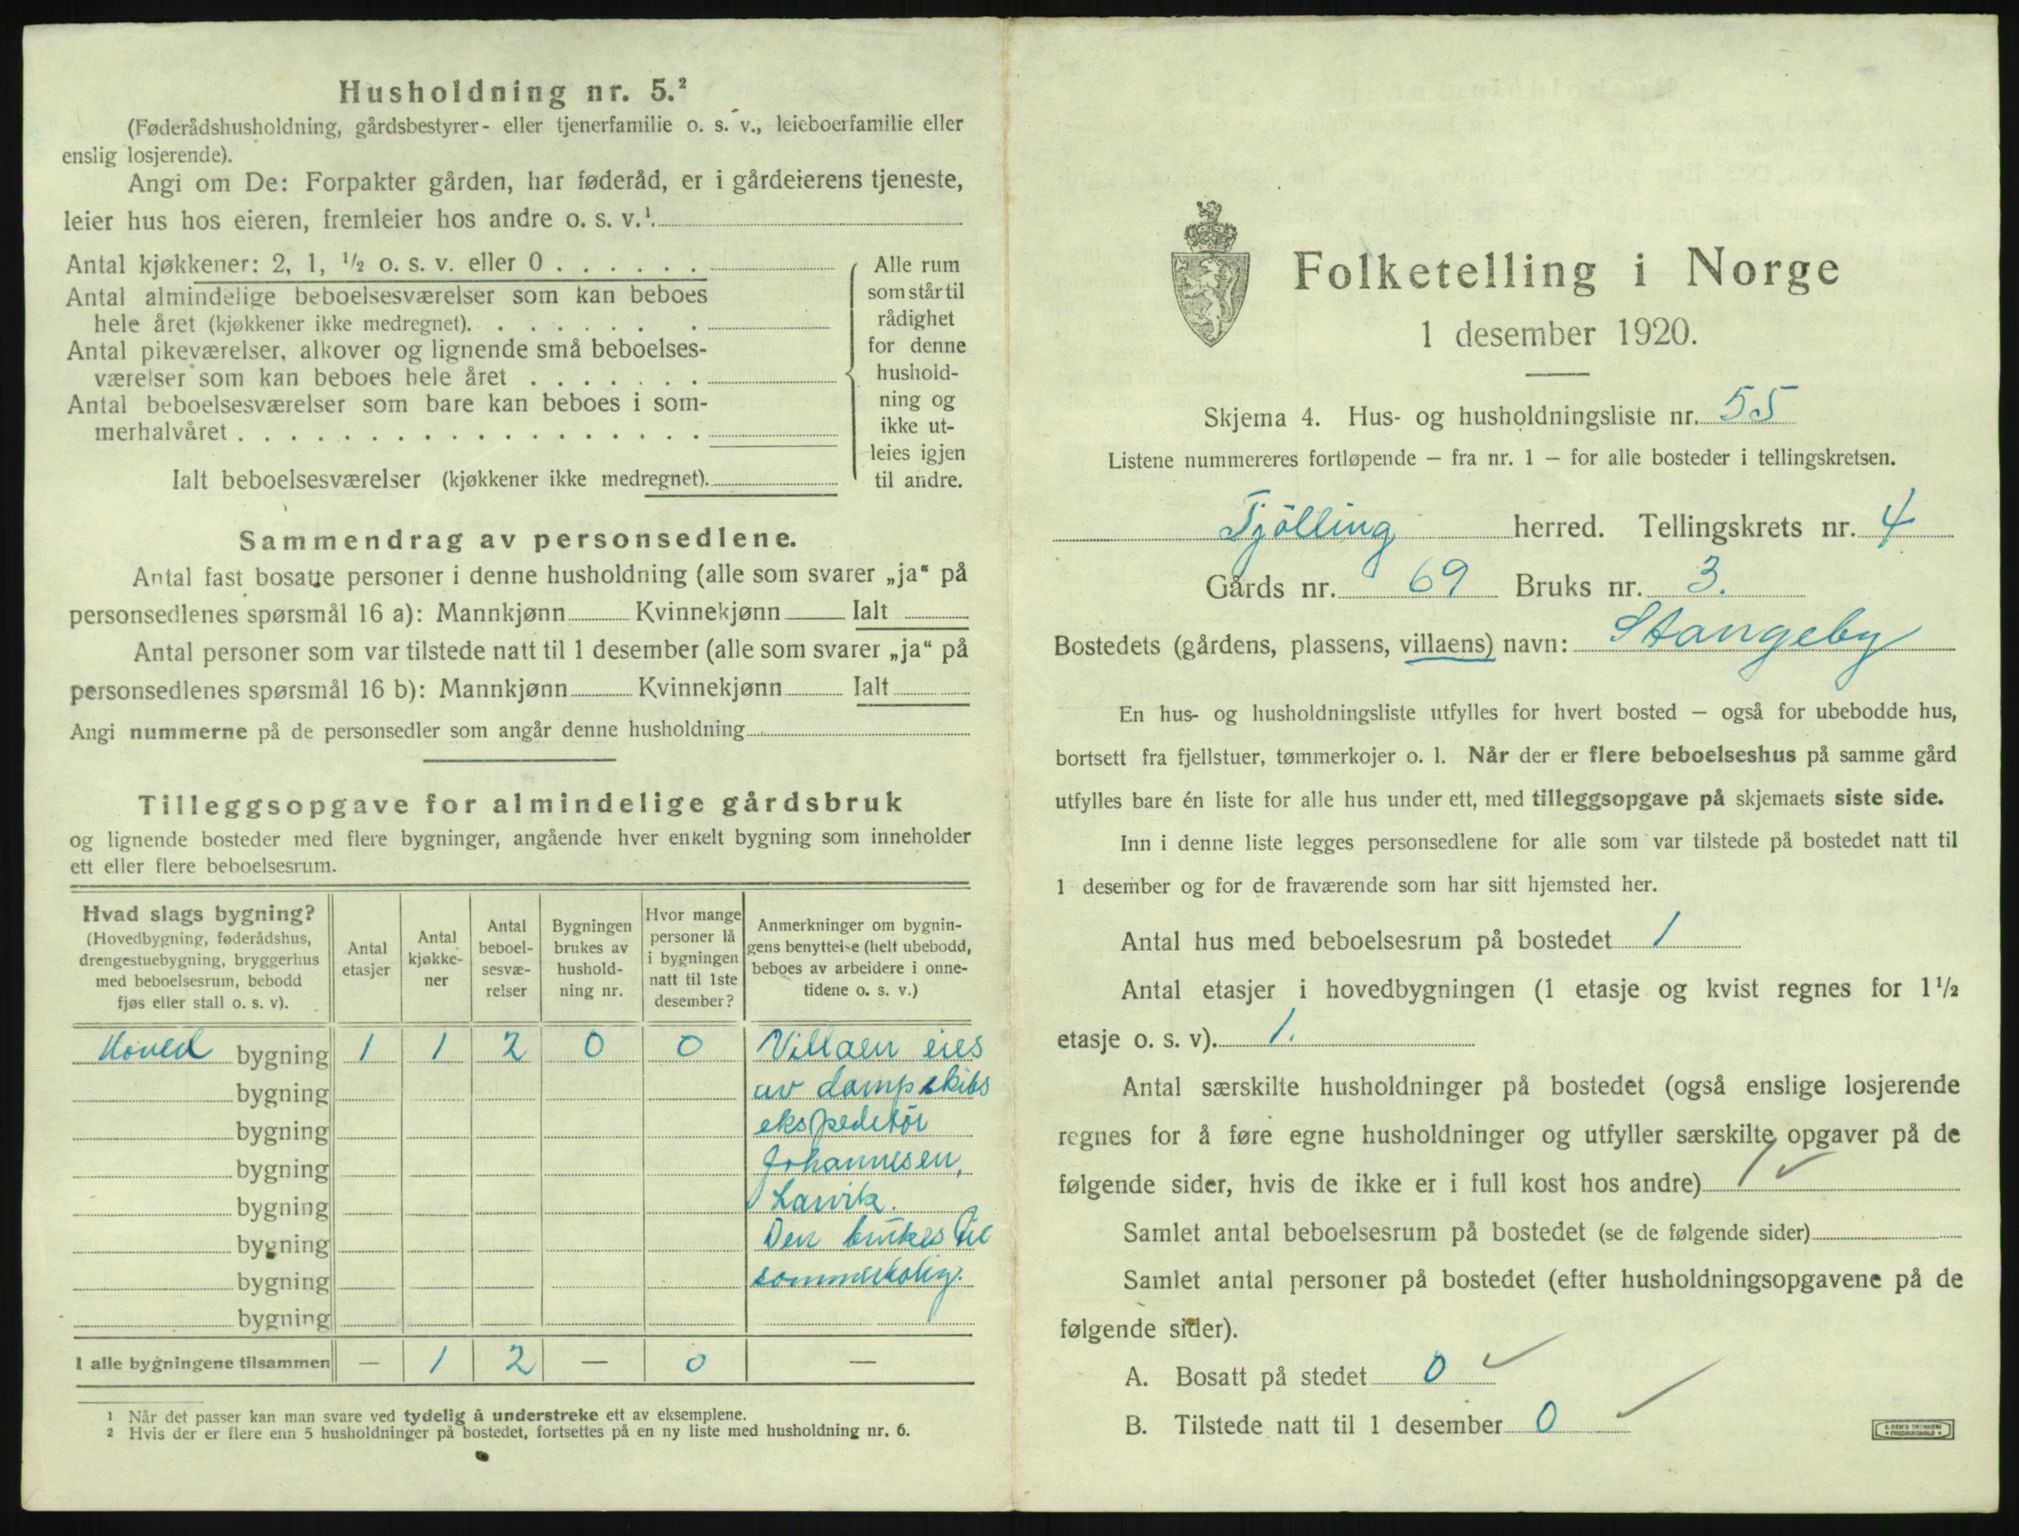 Husholdning nr. 5.²
(Føderådshusholdning, gårdsbestyrer- eller tjenerfamilie o. s. v., leieboerfamilie eller
enslig losjerende).
Angi om De: Forpakter gården, har føderåd, er i gårdeierens tjeneste,
leier hus hos eieren, fremleier hos andre o. s. v.¹
Antal kjøkkener: 2, 1, ½ o. s. v. eller 0 . . . . . .
Antal almindelige beboelsesværelser som kan beboes
hele året (kjøkkener ikke medregnet). . . . . . . . .
Antal pikeværelser, alkover og lignende små beboelses-
værelser som kan beboes hele året . . . . . . .
Antal beboelsesværelser som bare kan beboes i som-
merhalvåret . . . . . . . . . . . . . . . . . .
Ialt beboelsesværelser (kjøkkener ikke medregnet).
Alle rum
som står til
rådighet
for denne
hushold-
ning og
ikke ut-
leies igjen
til andre.
Sammendrag av personsedlene.
Antal fast bosatte personer i denne husholdning (alle som svarer „ja“ på
personsedlenes spørsmål 16 a): Mannkjønn Kvinnekjønn Ialt
Antal personer som var tilstede natt til 1 desember (alle som svarer „ja“ på
personsedlenes spørsmål 16 b): Mannkjønn Kvinnekjønn Ialt
Angi nummerne på de personsedler som angår denne husholdning
Tilleggsopgave for almindelige gårdsbruk
og lignende bosteder med flere bygninger, angående hver enkelt bygning som inneholder
ett eller flere beboelsesrum.
Hvad slags bygning?
(Hovedbygning, føderådshus,
drengestuebygning, bryggerhus
med beboelsesrum, bebodd
fjøs eller stall o. s. v).
Antal
etasjer
Antal
kjøkke-
ner
Antal
beboel-
sesvæ-
relser
Bygningen
brukes av
hushold-
ning nr.
Hvor mange
personer lå
i bygningen
natt til 1ste
desember?
Anmerkninger om bygnin-
gens benyttelse (helt ubebodd,
beboes av arbeidere i onne-
tidene o. s. v.)
Hoved bygning 1 1 2 0 0 Villaen eies
bygning av dampskibs
bygning ekspeditør
bygning Johannesen,
bygning Larvik.
bygning Den brukes til
bygning sommerbolig.
bygning
I alle bygningene tilsammen — 1 2 — 0 —
¹ Når det passer kan man svare ved tydelig å understreke ett av eksemplene.
² Hvis der er flere enn 5 husholdninger på bostedet, fortsettes på en ny liste med husholdning nr. 6.
Folketelling i Norge
1 desember 1920.
Skjema 4. Hus- og husholdningsliste nr. 55
Listene nummereres fortløpende — fra nr. 1 — for alle bosteder i tellingskretsen.
Tjölling herred. Tellingskrets nr. 4
Gårds nr. 69 Bruks nr. 3.
Bostedets (gårdens, plassens, villaens) navn: Stangeby
En hus- og husholdningsliste utfylles for hvert bosted — også for ubebodde hus,
bortsett fra fjellstuer, tømmerkojer o. l. Når der er flere beboelseshus på samme gård
utfylles bare én liste for alle hus under ett, med tilleggsopgave på skjemaets siste side.
Inn i denne liste legges personsedlene for alle som var tilstede på bostedet natt til
1 desember og for de fraværende som har sitt hjemsted her.
Antal hus med beboelsesrum på bostedet 1
Antal etasjer i hovedbygningen (1 etasje og kvist regnes for 1½
etasje o. s. v). 1.
Antal særskilte husholdninger på bostedet (også enslige losjerende
regnes for å føre egne husholdninger og utfyller særskilte opgaver på de
følgende sider, hvis de ikke er i full kost hos andre)
Samlet antal beboelsesrum på bostedet (se de følgende sider)
Samlet antal personer på bostedet (efter husholdningsopgavene på de
følgende sider).
A. Bosatt på stedet 0
B. Tilstede natt til 1 desember 0